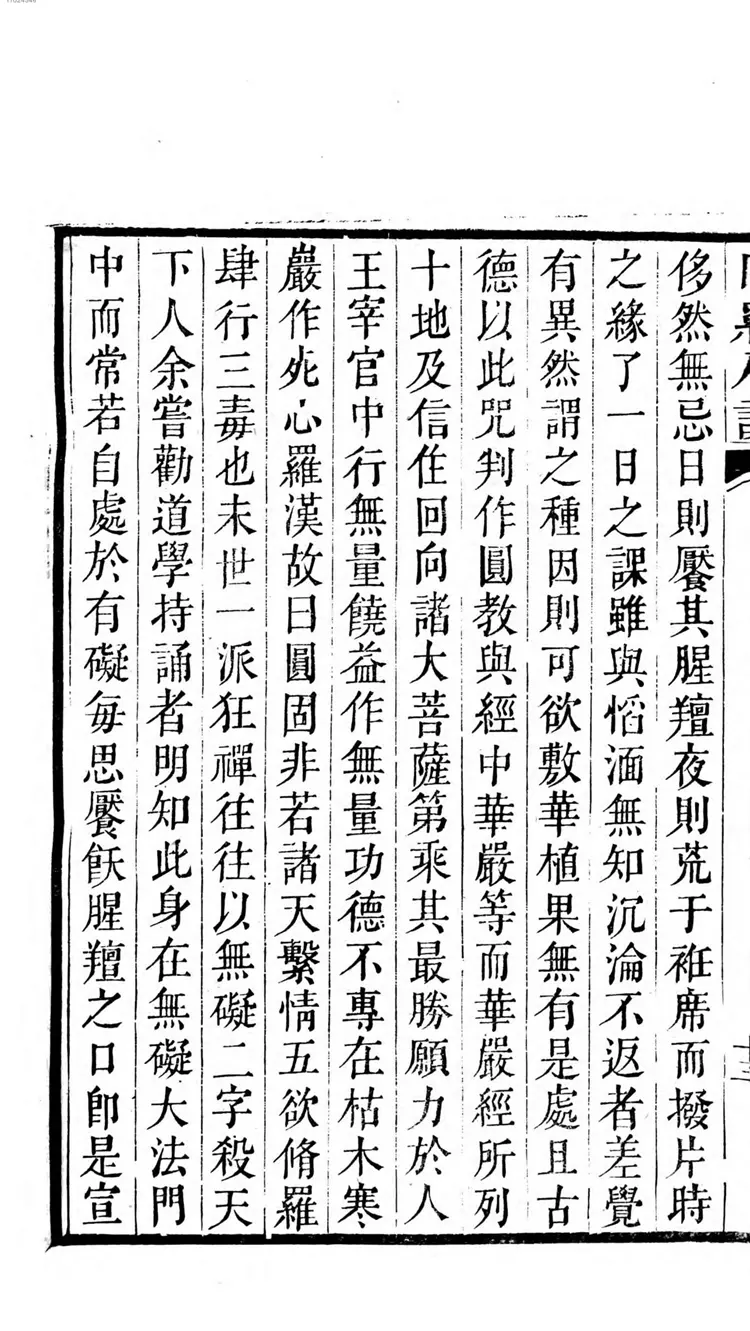 侈然無忌日則饜其腥羶夜則荒于袵席而撥片時
之緣了一日之課雖與慆湎無知沉淪不返者差覺
有異然謂之種因則可欲敷華植果無有是處且古
德以此咒判作圓教與經中華嚴等而華嚴經所列
十地及信住回向諸大菩薩第乘其最勝願力於人
王宰官中行無量饒益作無量功德不專在枯木寒
嚴作死心羅漢故曰圓固非若諸天繫情五欲脩羅
肆行三毒也末世一派狂禪往往以無礙二字殺天
下人余嘗勸道學持誦者明知此身在無礙大法門
中而常若自處於有礙每思饜飫腥羶之口即是宣